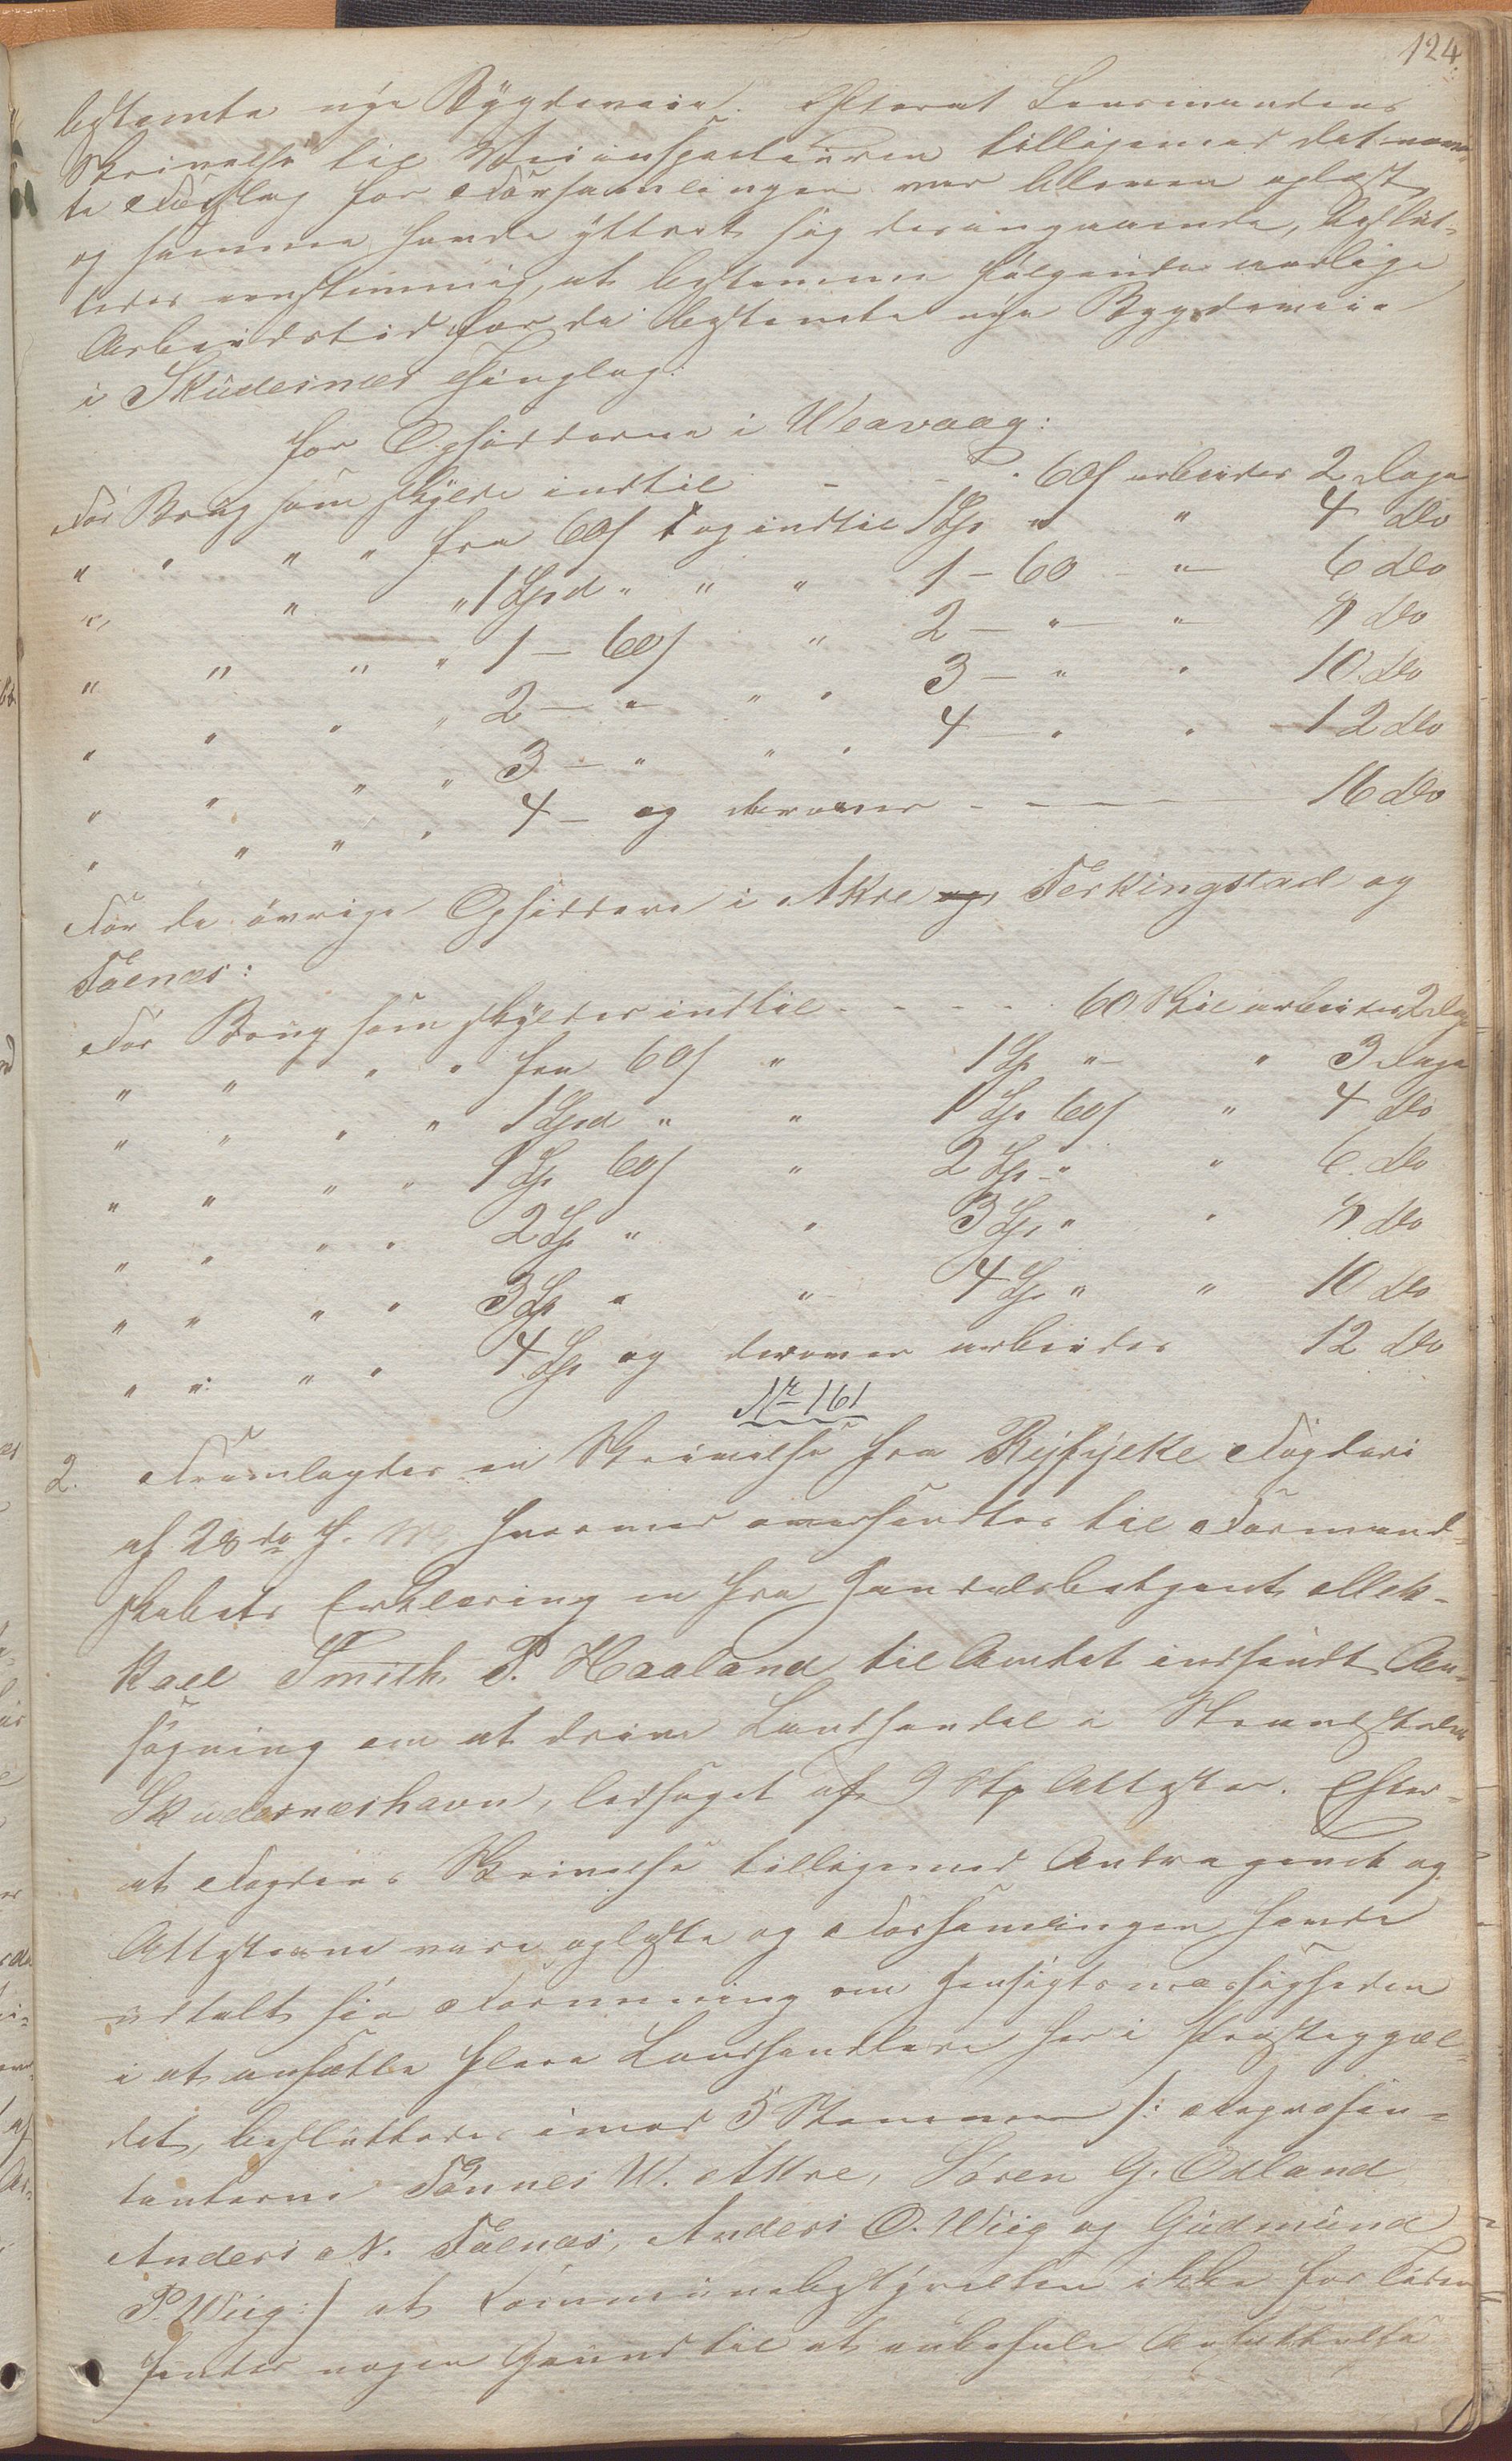 124
bestemte nye Bygdeveie. Efterat Lensmandens
Skrivelse til Veiinspecteuren tilligemed det nævn-
te Forslag for Forsamlingen var bleven oplæst
og samme havde yttret sig derangaaende, beslut-
tedes eenstemmig, at bestemme følgende aarlige
Arbeidstid for de bestemte nye Bygdeveie
i Skudesnæs Thinglag:
for Opsidderne i Weavaag:
For Brug som skylde indtil - - - 60 ß arbeides 2 Dage
" " " " fra 60 ß og indtil 1 Lp " " 4 do
" " " 1 Lpd " " " 1 - 60 - " - 6 do
" " " " 1 - 60 ß " 2 - " - " - 8 do
" " " " 2 - " - " " 3 - " " 10 do
" " " " 3 - " " " 4 - " " 12 do
" " " " 4 - og derover - - - - 16 do
For de övrige Opsiddere i Akre og, Ferkingstad og
Falnæs:
For Brug som skylder indtil - - - - 60 Skil arbeides 2 Dage
" " " " fra 60 ß " 1 Lp " - " 3 Dage
" " " " 1 Lpd " " 1 Lp 60 ß " 4 do
" " " " 1 Lp 60 ß " 2 Lp - " " 6 do
" " " " 2 Lp " " 3 Lp " " 8 do
" " " " 3 Lp " " 4 Lp " " 10 do
" " " " 4 Lp og derover arbeides 12 do
Nr 161
2. Fremlagdes en Skrivelse fra Ryfylke Fogderi
af 28de f. M. hvormed oversendtes til Formand-
skabets Erklæring en fra Handelsbetjent Mek-
kael Smith P. Haaland til Amtet indsendt An-
søgning om at drive Landhandel i Strandstedet
Skudesnæshavn, ledsaget af 9 Stk Attester. Efter-
at Fogdens Skrivelse tilligemed Andragendet og
Attesterne vare oplæste og Forsamlingen havde
udtalt sin Formening om Hensigtsmæssigheden
i at ansætte flere Landhandlere her i Præstegjæl-
det, besluttedes imod 5 Stemmer /: Repræsen-
tanterne Tönnes W. Akre, Sören G. Ödland
Anders N. Falnæs, Anders O. Wiig og Gudmund
P. Wiig :/ at Communebestyrelsen ikke for Tiden
finder nogen Grund til at anbefale Ansættelse